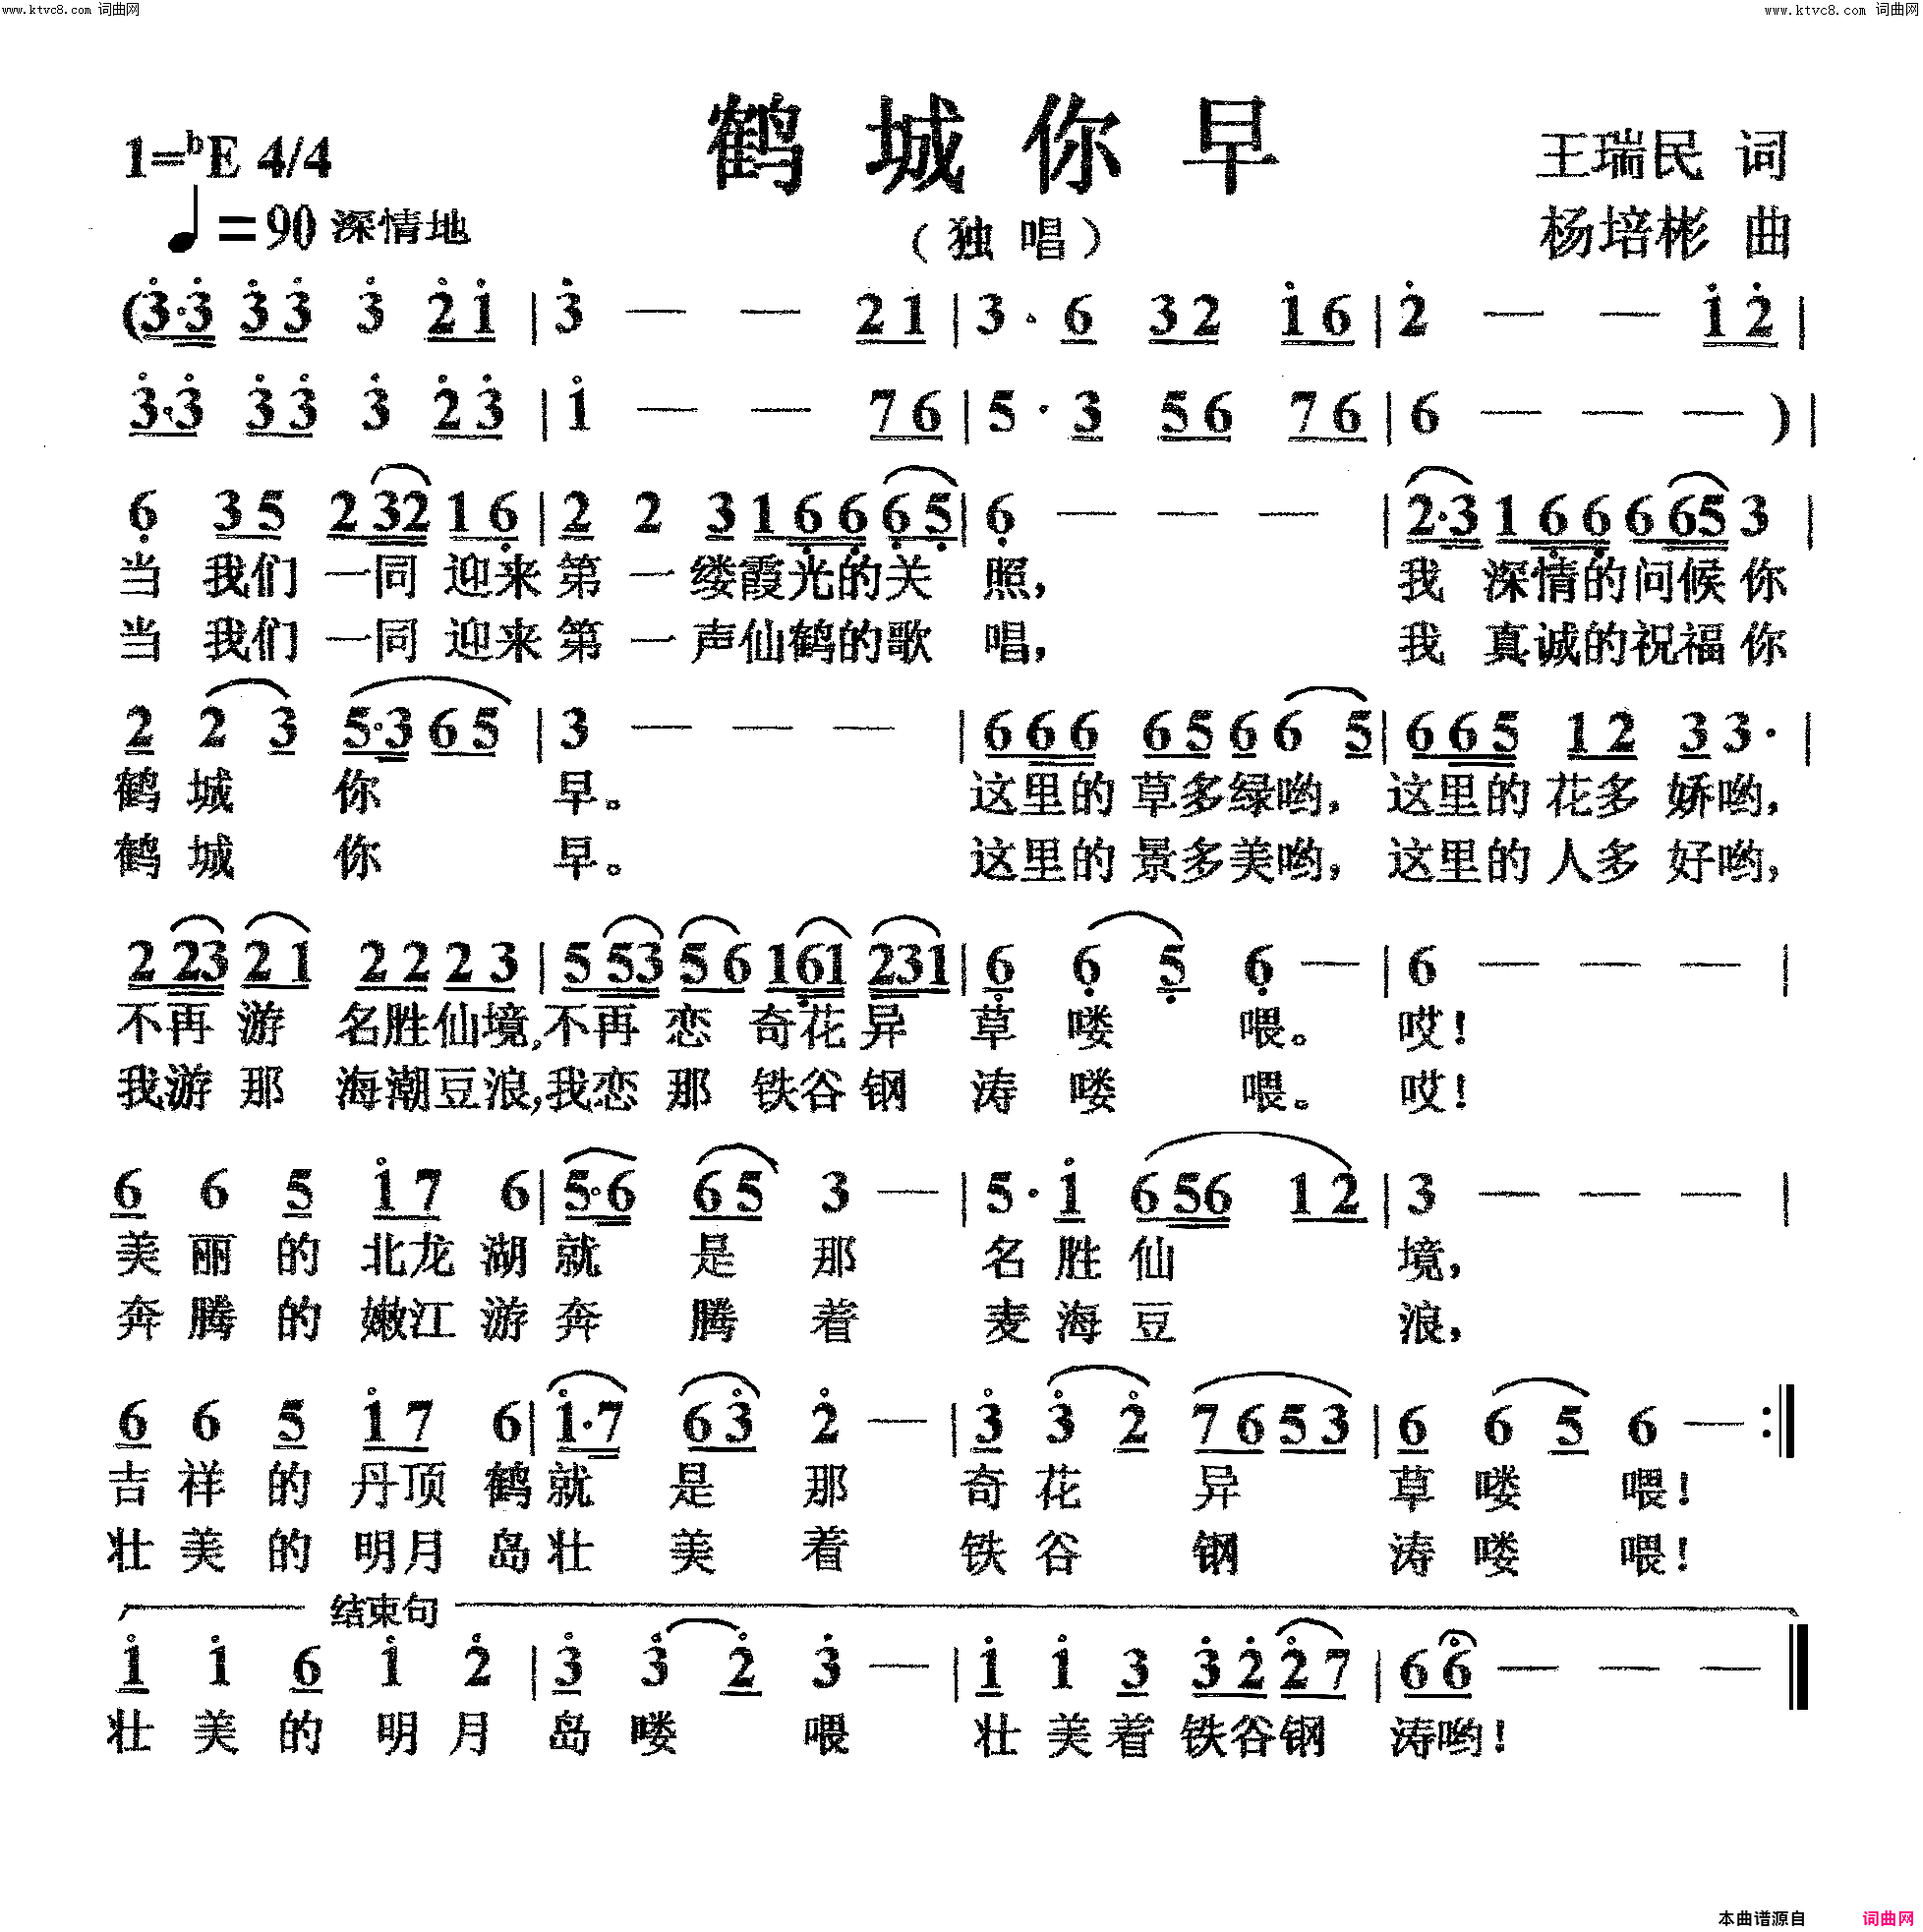 www.ktvc8.com 词曲网 www.ktvc8.com 词曲网
鹤城你早
1=ᵇE 4/4 王瑞民 词
♩=90 深情地 （独唱） 杨培彬 曲
(3̇·3̇ 3̇ 3̇ 3̇ 2̇ 1̇ | 3̇ — — 2 1 | 3 · 6 3 2 1̇ 6 | 2̇ — — 1̇ 2̇ |
3̇·3̇ 3̇ 3̇ 3̇ 2̇ 3̇ | 1̇ — — 7 6 | 5 · 3 5 6 7 6 | 6 — — — ) |
6̣ 3 5 2 32 1 6̣ | 2 2 3 1 6̣ 6̣ 6̣ 5̣ | 6̣ — — — | 2·3 1 6̣ 6̣ 6 65 3 |
当 我们 一同 迎来 第 一 缕霞光的关 照， 我 深情的问候你
当 我们 一同 迎来 第 一 声仙鹤的歌 唱， 我 真诚的祝福你
2 2 3 5·3 6 5 | 3 — — — | 6 6 6 6 5 6 6 5 | 6 6 5 1 2 3 3· |
鹤 城 你 早。 这里的 草多绿哟， 这里的 花多 娇哟，
鹤 城 你 早。 这里的 景多美哟， 这里的 人多 好哟，
2 23 2 1 2 2 2 3 | 5 53 5 6 1 6̣1 231 | 6 6̣ 5̣ 6̣ — | 6 — — — |
不再 游 名胜仙境,不再 恋 奇花异 草 喽 喂。 哎！
我游 那 海潮豆浪,我恋 那 铁谷钢 涛 喽 喂。 哎！
6 6 5 1̇ 7 6 | 5·6 6 5 3 — | 5 · 1̇ 6 56 1 2 | 3 — — — |
美 丽 的 北龙 湖 就 是 那 名 胜 仙 境，
奔 腾 的 嫩江 游 奔 腾 着 麦 海 豆 浪，
6 6 5 1̇ 7 6 | 1̇·7 6 3̇ 2̇ — | 3̇ 3̇ 2̇ 7 6 5 3 | 6 6 5 6 — :‖
吉 祥 的 丹顶 鹤 就 是 那 奇 花 异 草 喽 喂！
壮 美 的 明月 岛 壮 美 着 铁 谷 钢 涛 喽 喂！
结束句
1̇ 1̇ 6 1̇ 2̇ | 3̇ 3̇ 2̇ 3̇ — | 1̇ 1̇ 3 3̇ 2̇ 2̇ 7 | 6 6̇ — — — ‖
壮 美 的 明 月 岛 喽 喂 壮 美 着 铁谷钢 涛哟！
本曲谱源自 词曲网